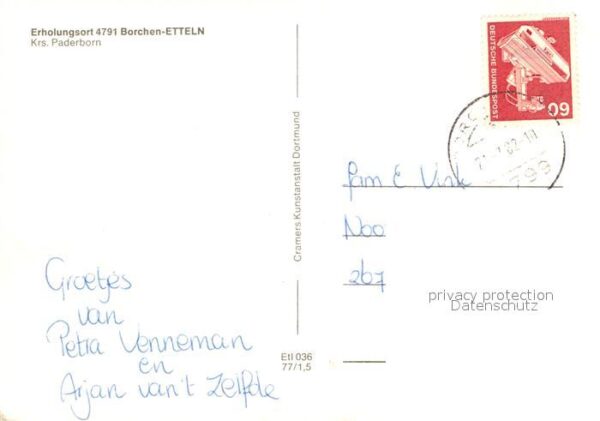 Erholungsort 4791 Borchen-ETTELN
Krs. Paderborn
Groetjes
van
Petra Venneman
en
Arjan van't Zelfde
Cramers Kunstanstalt Dortmund
Etl 036
77/1,5
DEUTSCHE BUNDESPOST
60
82-11
799
fam E Vink
Noo
267
privacy protection
Datenschutz